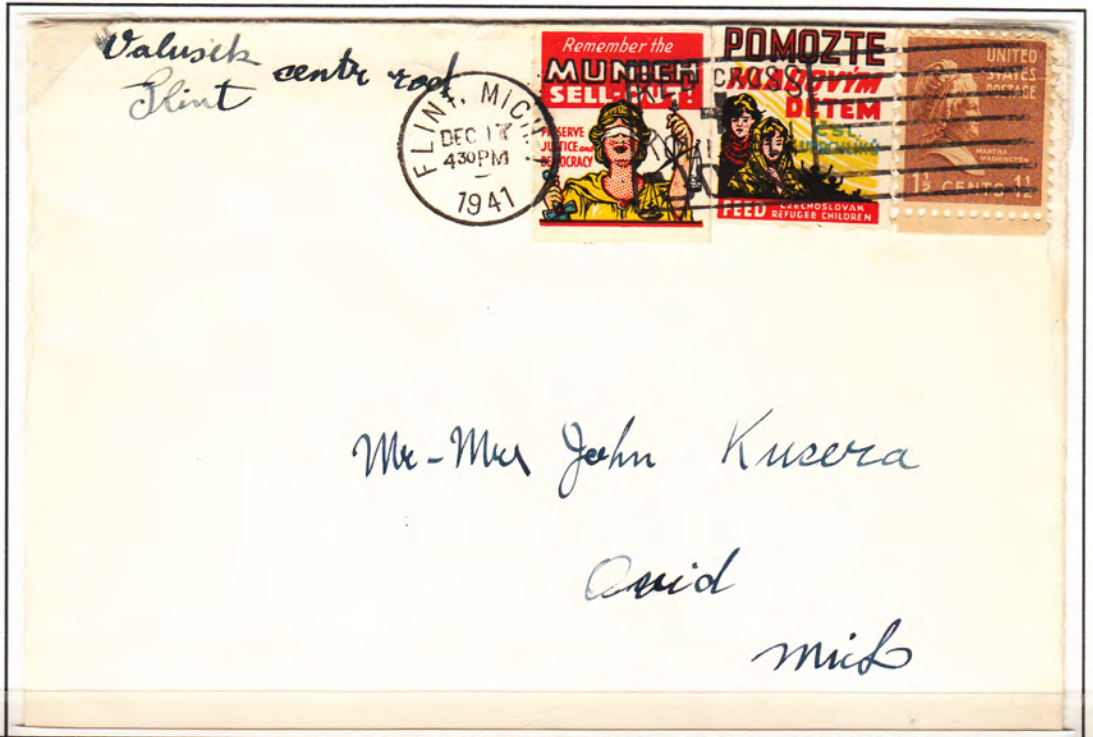 Valusek
Flint centr rod
FLINT, MICH.
DEC 17
4 30 PM
1941
Remember the
MUNICH
SELL-OUT!
PRESERVE
JUSTICE and
DEMOCRACY
POMOZTE
DĚTEM
ČSL.
FEED CZECHOSLOVAK
REFUGEE CHILDREN
RED CROSS
UNITED
STATES
POSTAGE
MARTHA
WASHINGTON
1½ CENTS 1½
Mr-Mrs John Kucera
Ovid
Mich